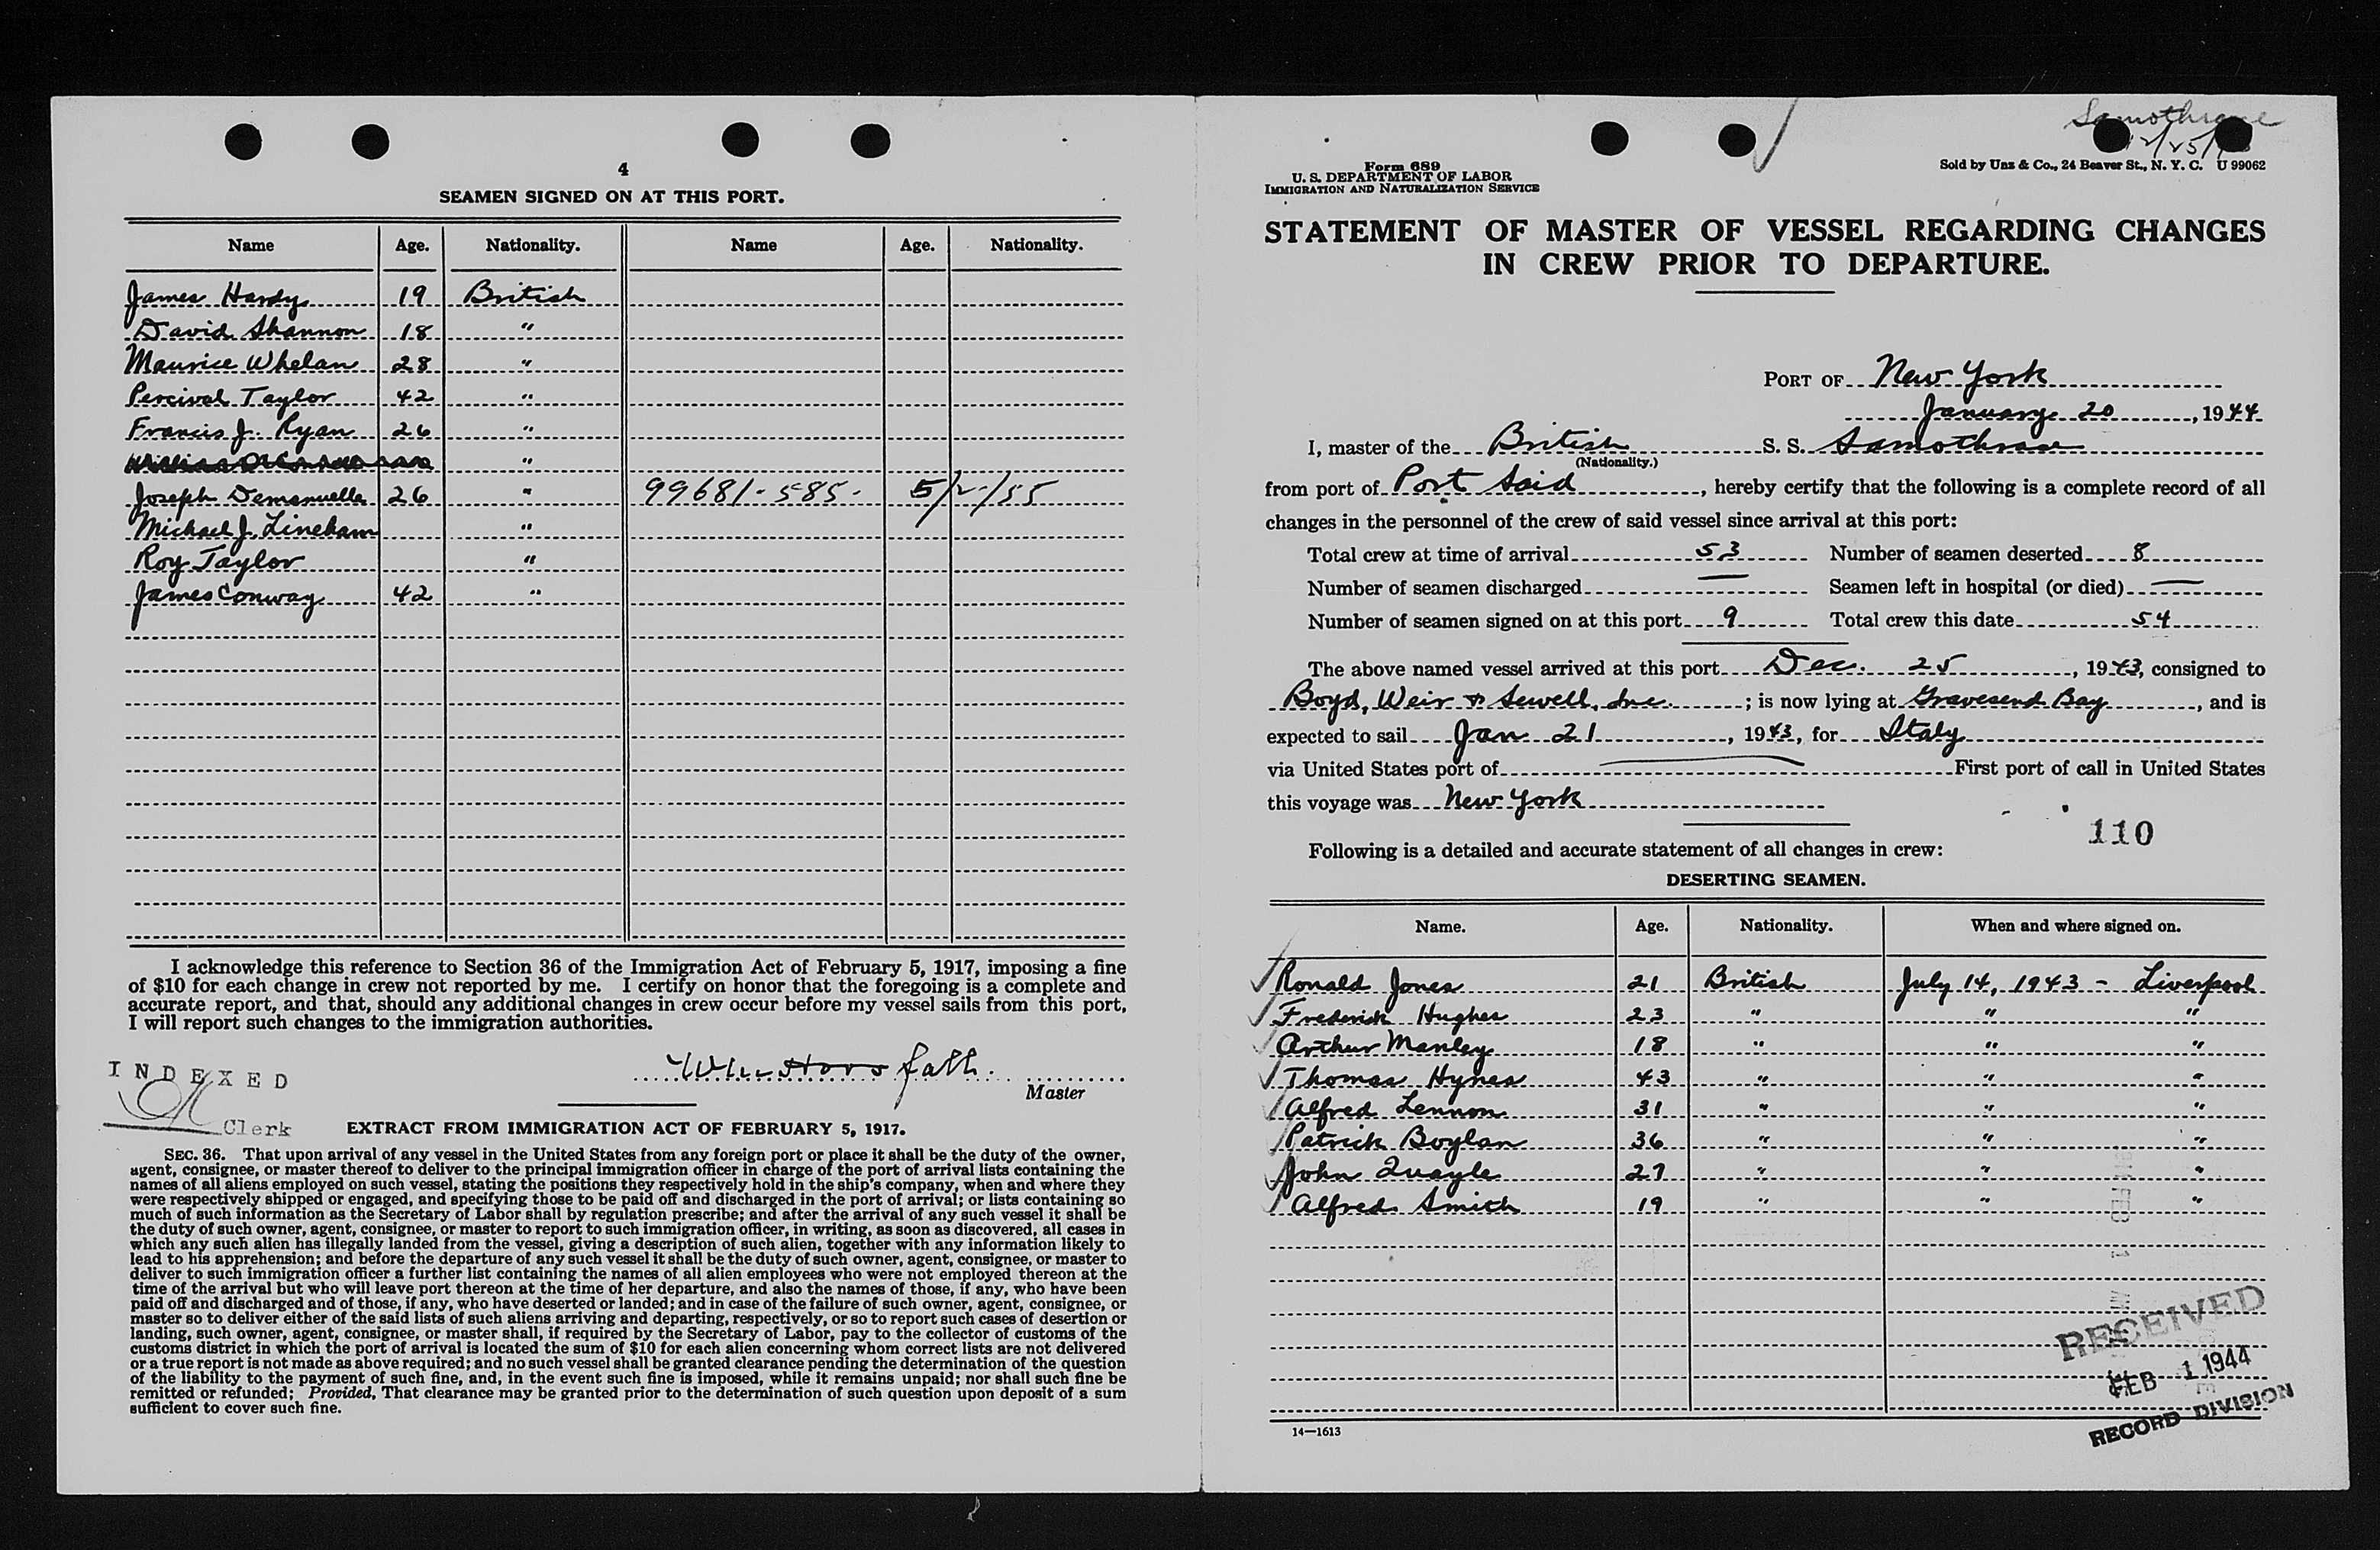 4
SEAMEN SIGNED ON AT THIS PORT.
Name Age. Nationality. Name Age. Nationality.
James Hardy 19 British
David Shannon 18 "
Maurice Whelan 28 "
Percival Taylor 42 "
Francis J. Ryan 26 "
"
Joseph Demanuelle 26 " 99681-585- 5/2/55
Michael J. Lineham "
Roy Taylor "
James Conway 42 "
I acknowledge this reference to Section 36 of the Immigration Act of February 5, 1917, imposing a fine
of $10 for each change in crew not reported by me. I certify on honor that the foregoing is a complete and
accurate report, and that, should any additional changes in crew occur before my vessel sails from this port,
I will report such changes to the immigration authorities.
Master
INDEXED
Clerk
EXTRACT FROM IMMIGRATION ACT OF FEBRUARY 5, 1917.
SEC. 36. That upon arrival of any vessel in the United States from any foreign port or place it shall be the duty of the owner,
agent, consignee, or master thereof to deliver to the principal immigration officer in charge of the port of arrival lists containing the
names of all aliens employed on such vessel, stating the positions they respectively hold in the ship's company, when and where they
were respectively shipped or engaged, and specifying those to be paid off and discharged in the port of arrival; or lists containing so
much of such information as the Secretary of Labor shall by regulation prescribe; and after the arrival of any such vessel it shall be
the duty of such owner, agent, consignee, or master to report to such immigration officer, in writing, as soon as discovered, all cases in
which any such alien has illegally landed from the vessel, giving a description of such alien, together with any information likely to
lead to his apprehension; and before the departure of any such vessel it shall be the duty of such owner, agent, consignee, or master to
deliver to such immigration officer a further list containing the names of all alien employees who were not employed thereon at the
time of the arrival but who will leave port thereon at the time of her departure, and also the names of those, if any, who have been
paid off and discharged and of those, if any, who have deserted or landed; and in case of the failure of such owner, agent, consignee, or
master so to deliver either of the said lists of such aliens arriving and departing, respectively, or so to report such cases of desertion or
landing, such owner, agent, consignee, or master shall, if required by the Secretary of Labor, pay to the collector of customs of the
customs district in which the port of arrival is located the sum of $10 for each alien concerning whom correct lists are not delivered
or a true report is not made as above required; and no such vessel shall be granted clearance pending the determination of the question
of the liability to the payment of such fine, and, in the event such fine is imposed, while it remains unpaid; nor shall such fine be
remitted or refunded; Provided, That clearance may be granted prior to the determination of such question upon deposit of a sum
sufficient to cover such fine.
Samothrace
12/25/
Form 689
U. S. DEPARTMENT OF LABOR
IMMIGRATION AND NATURALIZATION SERVICE
Sold by Unz & Co., 24 Beaver St., N. Y. C. U 99062
STATEMENT OF MASTER OF VESSEL REGARDING CHANGES
IN CREW PRIOR TO DEPARTURE.
PORT OF New York
January 20, 1944
I, master of the British S. S. Samothrace
(Nationality.)
from port of Port Said, hereby certify that the following is a complete record of all
changes in the personnel of the crew of said vessel since arrival at this port:
Total crew at time of arrival 53 Number of seamen deserted 8
Number of seamen discharged — Seamen left in hospital (or died) —
Number of seamen signed on at this port 9 Total crew this date 54
The above named vessel arrived at this port Dec. 25, 1943, consigned to
Boyd, Weir & Sewell, Inc.; is now lying at Gravesend Bay, and is
expected to sail Jan 21, 1943, for Italy
via United States port of — First port of call in United States
this voyage was New York
110
Following is a detailed and accurate statement of all changes in crew:
DESERTING SEAMEN.
Name. Age. Nationality. When and where signed on.
Ronald Jones 21 British July 14, 1943 - Liverpool
Frederick Hughes 23 " " "
Arthur Manley 18 " " "
Thomas Hynes 43 " " "
Alfred Lennon 31 " " "
Patrick Boylan 36 " " "
John Quayle 27 " " "
Alfred Smith 19 " " "
RECEIVED
FEB 1 1944
RECORD DIVISION
14—1613